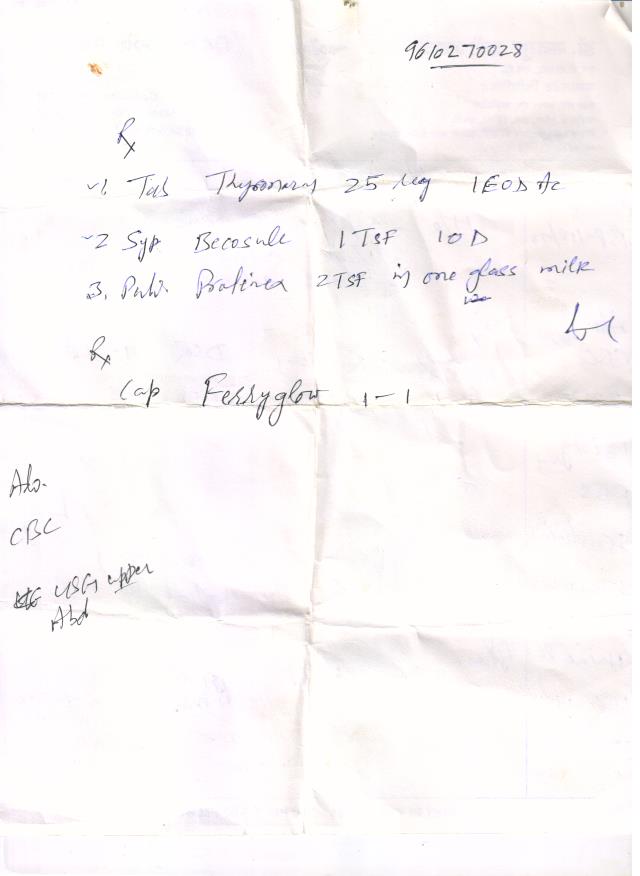 9610270028
Rx
1. Tab Thyronorm 25 mcg 1 EOD AC
2 Syp Becosule 1 TSF 1OD
3. Pulv. Protinex 2TSF in one glass milk
Rx
Cap Ferryglow 1-1
Adv.
CBC
USG upper
Abd